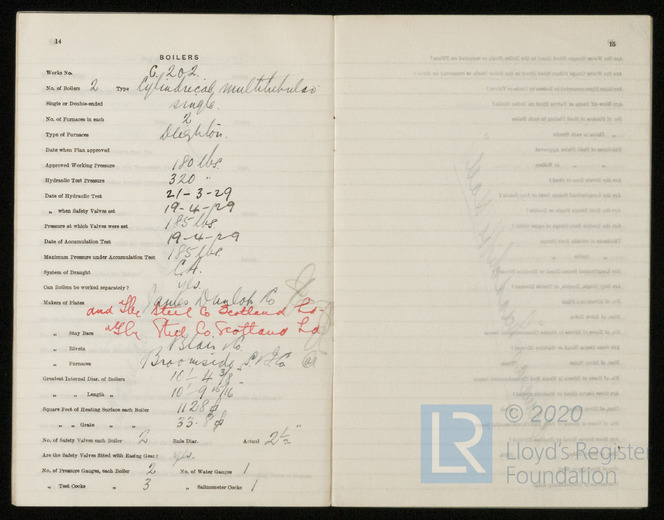 14
BOILERS
Works No. C. 202.
No. of Boilers 2 Type Cylindrical multitubular
Single or Double-ended single.
No. of Furnaces in each 2
Type of Furnaces Deighton.
Date when Plan approved
Approved Working Pressure 180 lbs.
Hydraulic Test Pressure 320 "
Date of Hydraulic Test 21-3-29
„ when Safety Valves set 19-4-29
Pressure at which Valves were set 185 lbs.
Date of Accumulation Test 19-4-29
Maximum Pressure under Accumulation Test 185 lbs.
System of Draught
Can Boilers be worked separately? yes.
Makers of Plates James Dunlop Co
and The Steel Co Scotland Ld.
„ Stay Bars The Steel Co. Scotland Ld
„ Rivets Blair Co
„ Furnaces Broomside
Greatest Internal Diar. of Boilers 10'- 4 3/8"
„ „ Length „ 10'- 9 1/16
Square Feet of Heating Surface each Boiler 1128
„ „ Grate „ „ 33.8
No. of Safety Valves each Boiler 2 Rule Diar. Actual 2 1/2"
Are the Safety Valves fitted with Easing Gear? yes.
No. of Pressure Gauges, each Boiler 2 No. of Water Gauges 1
„ Test Cocks „ 3 „ Salinometer Cocks 1
15
LR
© 2020
Lloyd's Register
Foundation